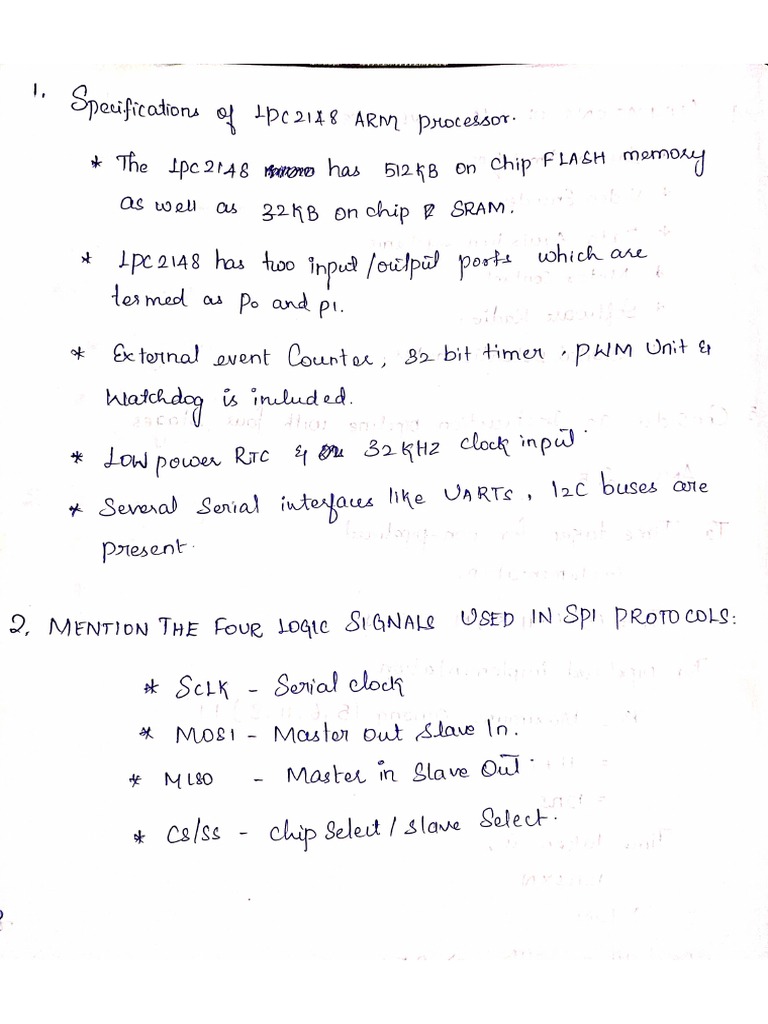 1. Specifications of LPC2148 ARM processor.
* The LPC2148 has 512KB on chip FLASH memory
as well as 32KB on chip SRAM.
* LPC2148 has two input/output ports which are
termed as P0 and P1.
* External event Counter, 32 bit timer, PWM Unit &
Watchdog is included.
* Low power RTC & 32KHZ clock input.
* Several Serial interfaces like UARTs, I2C buses are
present.
2. MENTION THE FOUR LOGIC SIGNALS USED IN SPI PROTOCOLS:
* SCLK - Serial clock
* MOSI - Master out Slave In.
* MISO - Master in Slave Out.
* CS/SS - Chip Select / Slave Select.